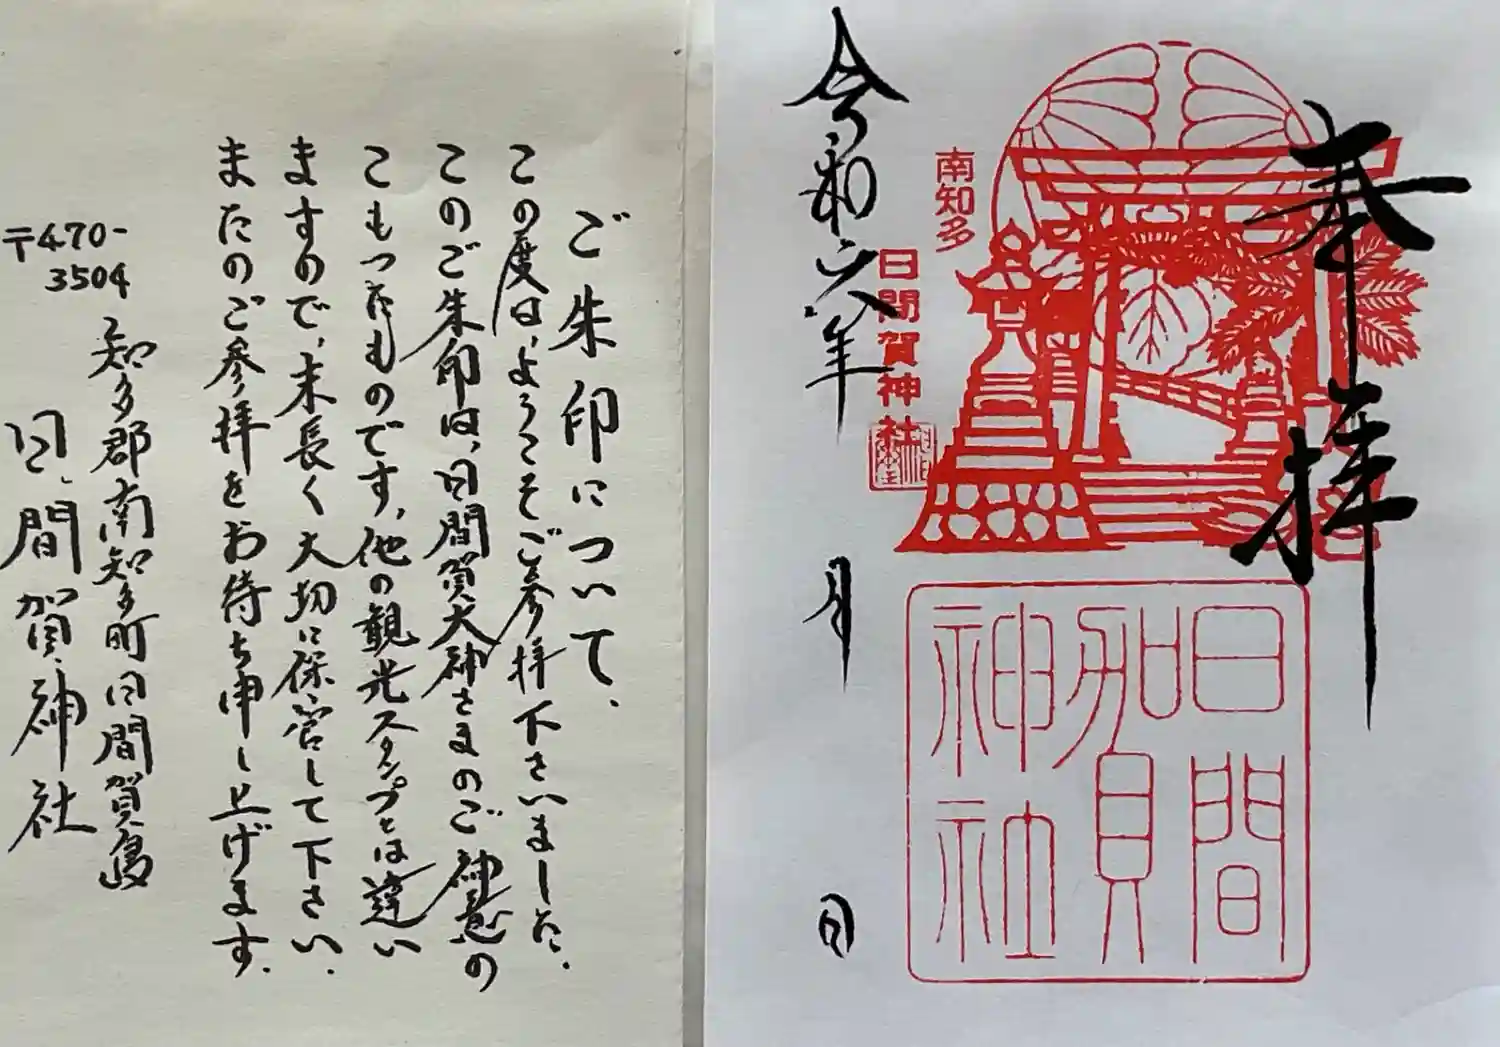 奉拝
南知多
日間賀神社
日間賀神社
令和六年
月
日
ご朱印について.
この度は、ようこそご参拝下さいました.
このご朱印は、日間賀大神さまのご神意の
こもったものです、他の観光スタンプとは違い
ますので、末長く大切に保管して下さい.
またのご参拝をお待ち申し上げます.
〒470-
3504
知多郡南知多町日間賀島
日間賀神社